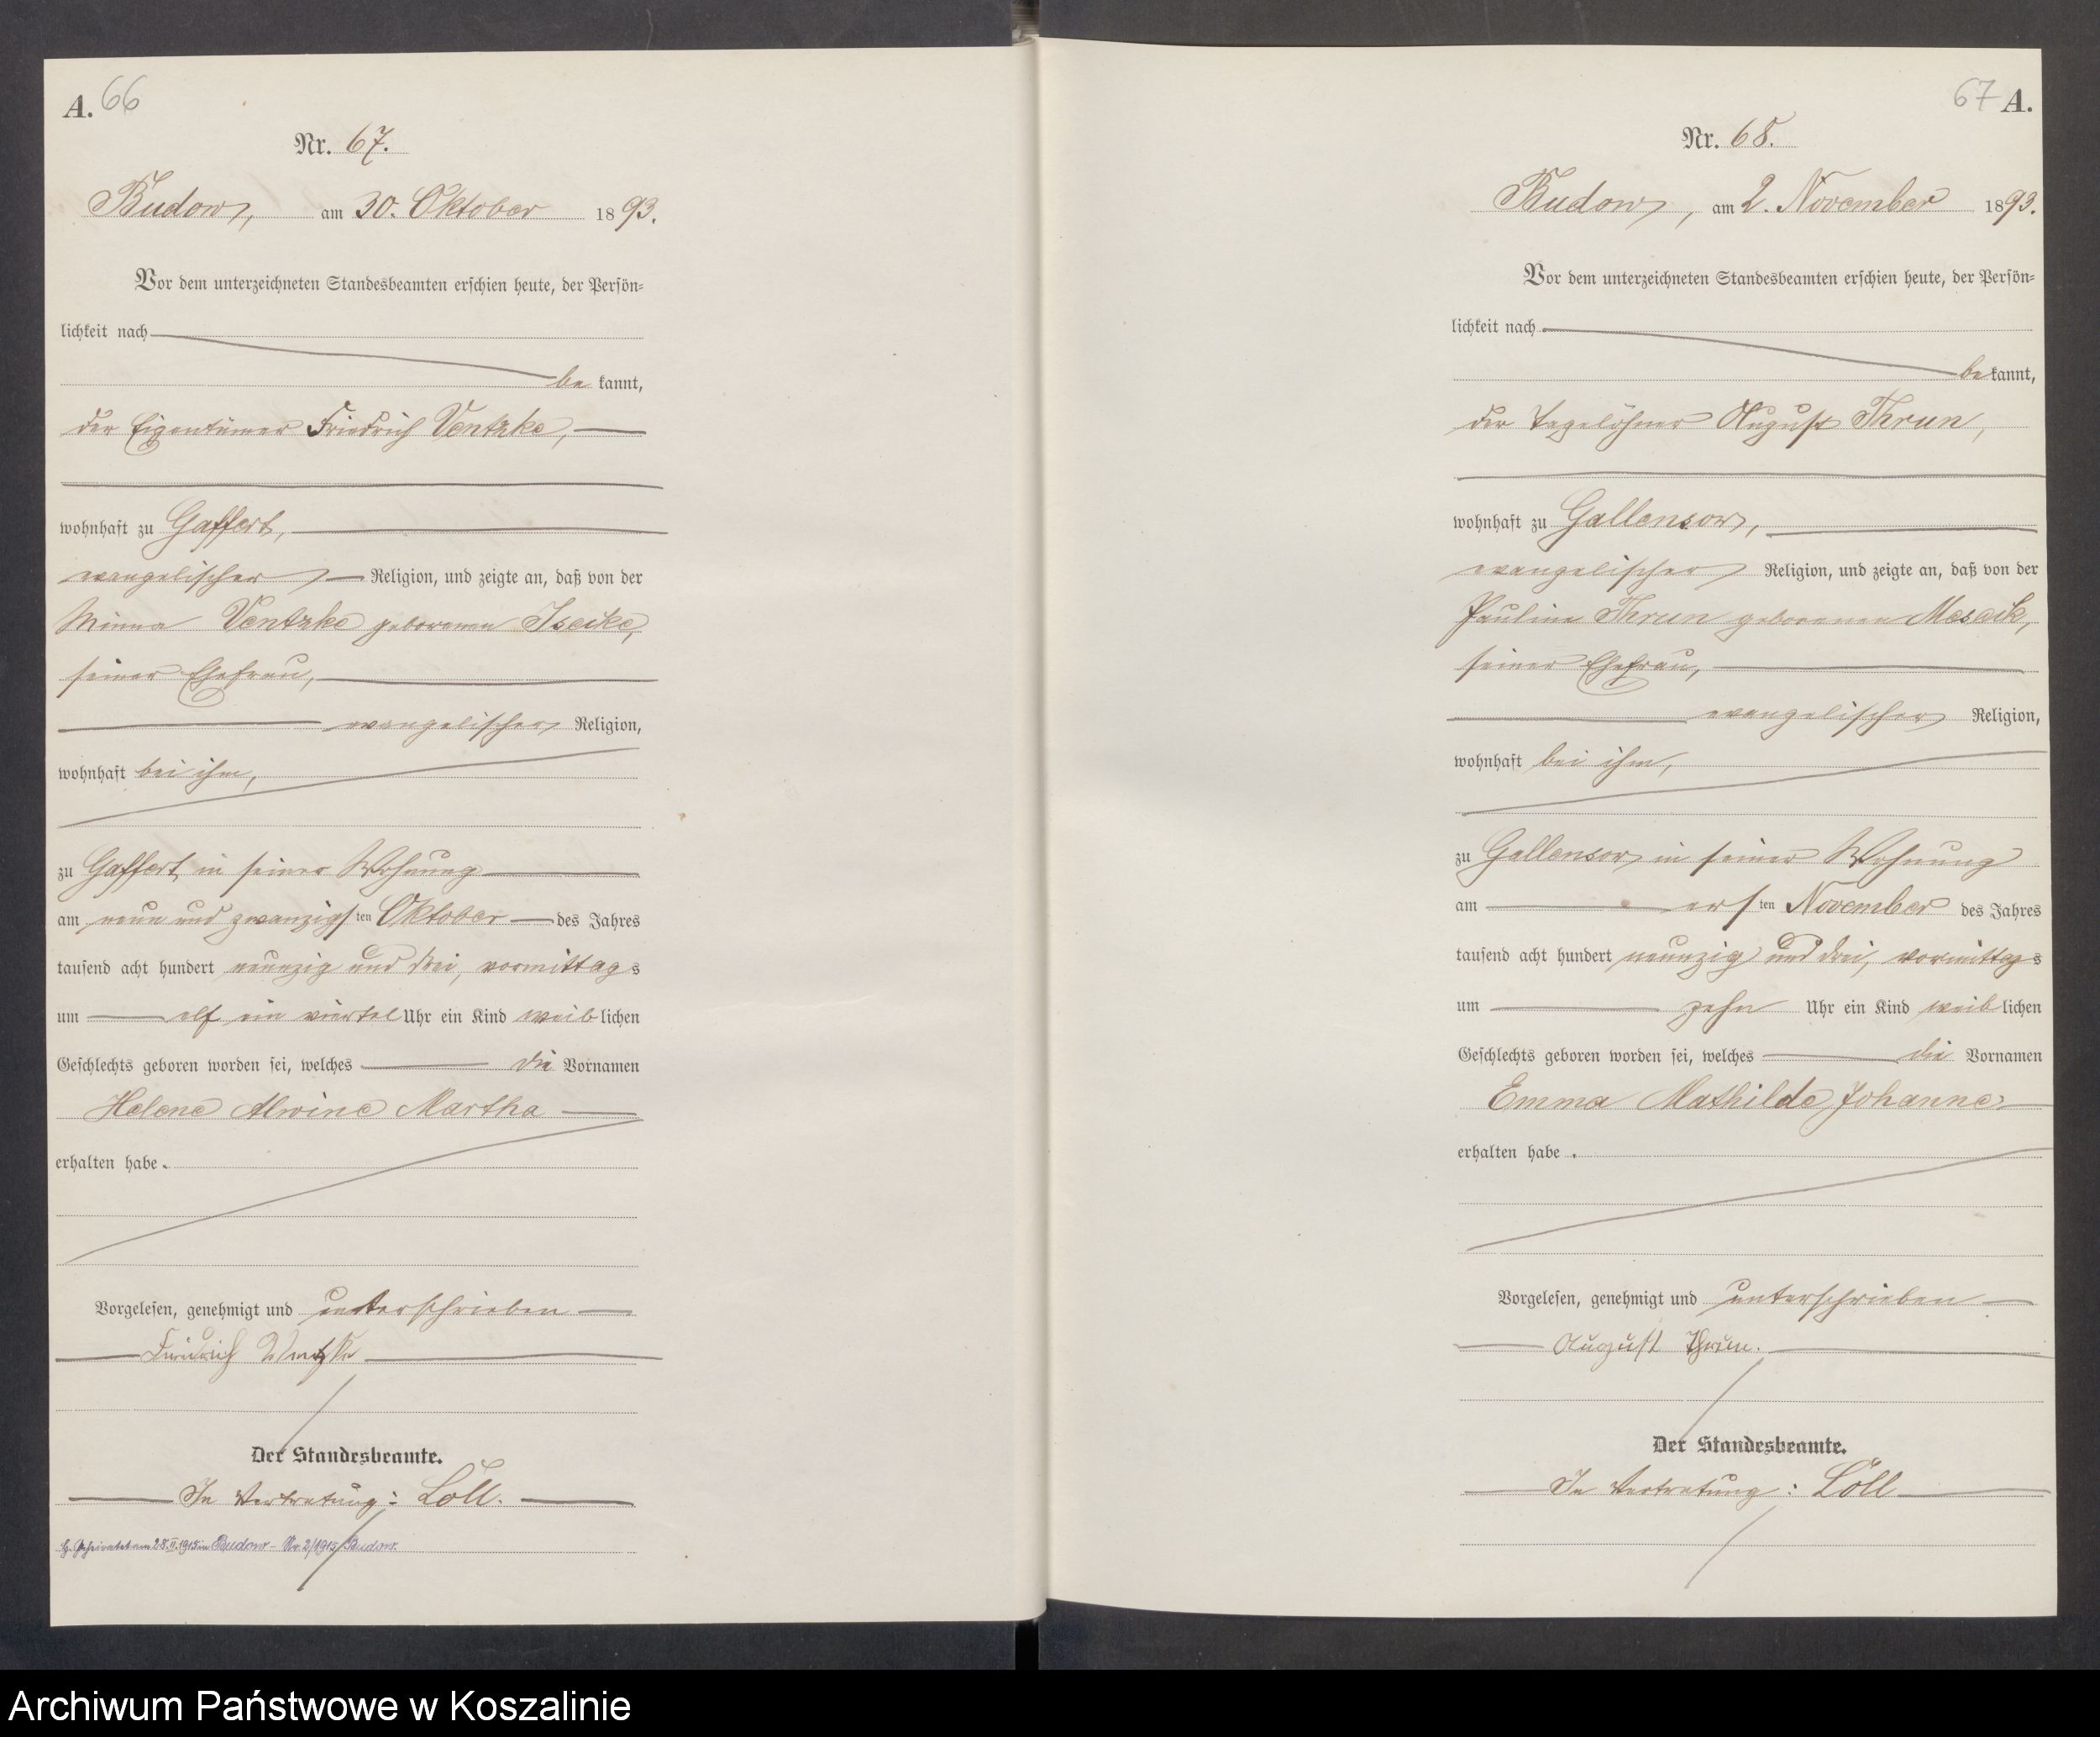 A. 66
Nr. 67.
Budow, am 30. Oktober 1893.
Vor dem unterzeichneten Standesbeamten erschien heute, der Persön-
lichkeit nach
be kannt,
der Eigentümer Friedrich Ventzke,
wohnhaft zu Gaffert,
evangelischer Religion, und zeigte an, daß von der
Minna Ventzke geborenen Iseike,
seiner Ehefrau,
evangelischer Religion,
wohnhaft bei ihm,
zu Gaffert in seiner Wohnung
am neun und zwanzigsten Oktober des Jahres
tausend acht hundert neunzig und drei, vormittags
um elf ein viertel Uhr ein Kind weiblichen
Geschlechts geboren worden sei, welches die Vornamen
Helene Alwine Martha
erhalten habe.
Vorgelesen, genehmigt und unterschrieben
Friedrich Ventzke
Der Standesbeamte.
In Vertretung: Löll.
am 28.II.1915 in Budow - Nr. 2/1915 Budow.
67 A.
Nr. 68.
Budow, am 2. November 1893.
Vor dem unterzeichneten Standesbeamten erschien heute, der Persön-
lichkeit nach
be kannt,
der Tagelöhner August Thrun,
wohnhaft zu Gallensow,
evangelischer Religion, und zeigte an, daß von der
Pauline Thrun geborenen Meseck,
seiner Ehefrau,
evangelischer Religion,
wohnhaft bei ihm,
zu Gallensow in seiner Wohnung
am ersten November des Jahres
tausend acht hundert neunzig und drei, vormittags
um zehn Uhr ein Kind weiblichen
Geschlechts geboren worden sei, welches die Vornamen
Emma Mathilde Johanne
erhalten habe.
Vorgelesen, genehmigt und unterschrieben
August Thrun.
Der Standesbeamte.
In Vertretung: Löll
Archiwum Państwowe w Koszalinie